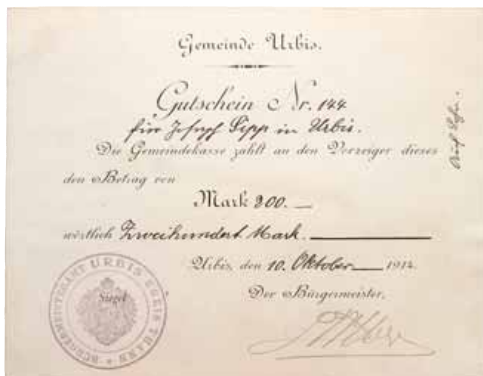 Gemeinde Urbis.
Gutschein Nr. 144
für Joseph Sipp in Urbis.
Die Gemeindekasse zahlt an den Vorzeiger dieses
den Betrag von
Mark 200.—
wörtlich Zweihundert Mark.
Urbis, den 10. Oktober 1914.
Der Bürgermeister.
BÜRGERMEISTERAMT URBIS KREIS THANN
Siegel